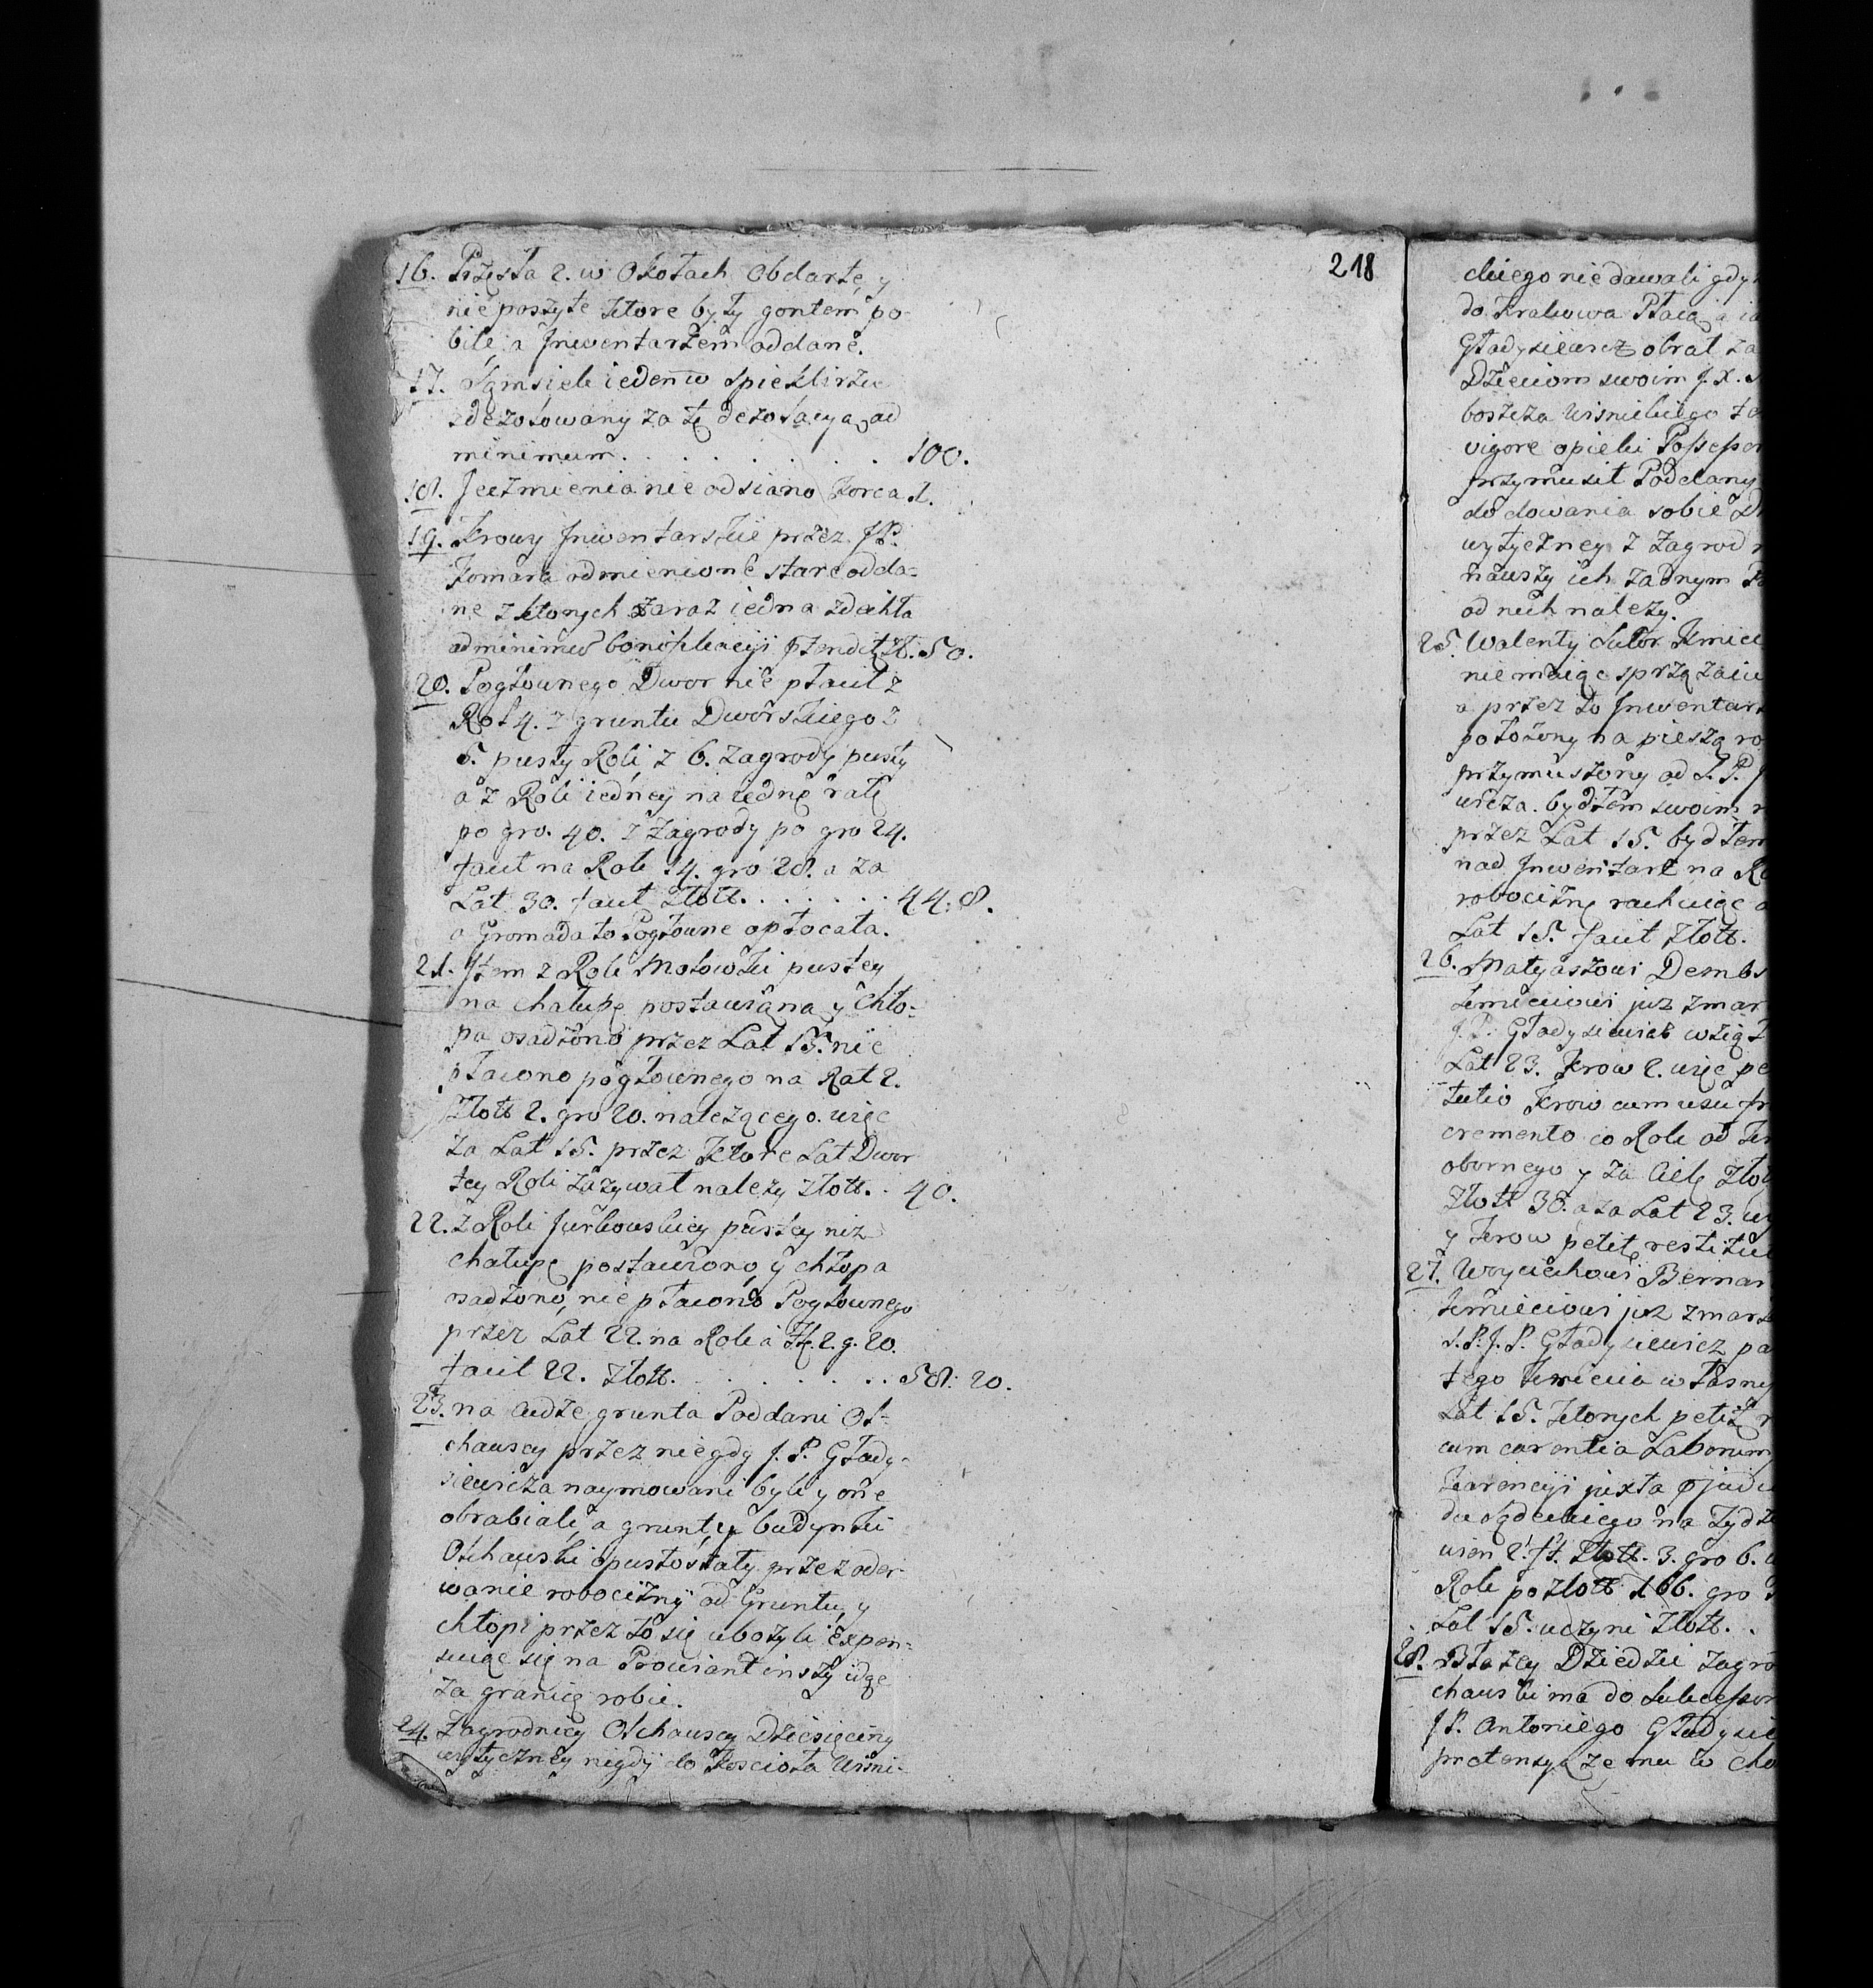 218
16. Przęsła 2. w Okołach obdarte, y
nie poszyte ktore były gontem po-
bite, a Jnwentarzem oddane.
17. Sąmsiek ieden w Spieklirzu
zdezolowany za tę dezolacyą ad
minimum . . . . . . . . 100.
18. Jęczmienia nie odsiano korca 1.
19. Krowy Jnwentarskie przez JP.
Komara odmienione stare odda-
ne z ktorych zaraz iedna zdechła
ad minimum bonifikacyi ztł. 50.
20. Pogłownego Dwor nie płacił z
Rol 4. z gruntu Dworskiego z
5. pusty Roli, z 6. zagrody pusty
a z Roli iedney na iednę ratę
po gro. 40. z Zagrody po gro 24.
facit na Rok 14. gro 28. a za
Lat 30. facit Złott. . . . . . . 44: 8.
a Gromada to Pogłowne opłocała.
21. Jtem z Roli Motowski pustey
na chałupę postawiona y Chło-
pa osadzono przez Lat 15. nie
płacono pogłownego na Rat 2.
Złott 2. gro 20. nalezącego. więc
za Lat 15. przez ktore Lat Dwor
tey Roli zazywał nalezy złott. . 40.
22. z Roli Jurkowskiey pustey niz
chałupę postawiono y chłopa
osadzono, nie płacono Pogłownego
przez Lat 22. na Rok a Zł. 2. g. 20.
facit 22. Złott. . . . . . . . 58: 20.
23. na cudze grunta Poddani Ol-
chauscy przez niegdy J. P. Głady-
siewicza naymowani byli y one
obrabiali, a grunty y budynki
Olchauski opustoszały przez oder-
wanie robocizny od Gruntu, y
chłopi przez to się ubozyli expen-
suiąc się na Prowiant inszy idąc
za granicę robic.
24. Zagrodnicy Olchauscy Dziesięciny
wytyczney nigdy do Koscioła Wisni-
ckiego nie dawali gdy
do Krakowa Płacą a
Gładysiewicz obrał za
Dzieciom swoim J. X.
boszcza Wisnickiego
vigore opieki Possessor
przymusił Poddany
do dowania sobie
wytyczney z Zagrod
nauszy ich zadnym
od nich nalezy.
25. Walenty Sutor Kmiec
nie maiąc sprzązaiu
a przez to Jnwentarz
położony na pieszą ro
przymuszony od S. P. J
wicza. bydłem swoim
przez Lat 15. bydłem
nad Jnwentarz na Ro
robociznę rachuiąc
Lat 15. facit złott.
26. Matyaszowi Dembs
kmieciowi juz zmar
J. P. Gładysiewicz wziął
Lat 23. Krow 2. więc pe
tutio Krow cum usu fr
cremento co Rok od
obornego y za Cielę Zło
Złott 38. a za Lat 23.
y Krow petitę restitu
27. Woyciechowi Bernar
kmieciowi juz zmar
S. P. J. P. Gładysiewicz pa
tego kmiecia własny
Lat 15. ktorych petit
cum carentia Laborum
Karencyi juxta
du sądeckiego na Tydz
Złott. 3. gro 6.
Rok po złott 166. gro
Lat 15. uczyni złott. .
28. Błazey Dziedzic zagro
chauski ma do Sukcessor
JP. Antoniego Gładysie
pretensyą ze mu w